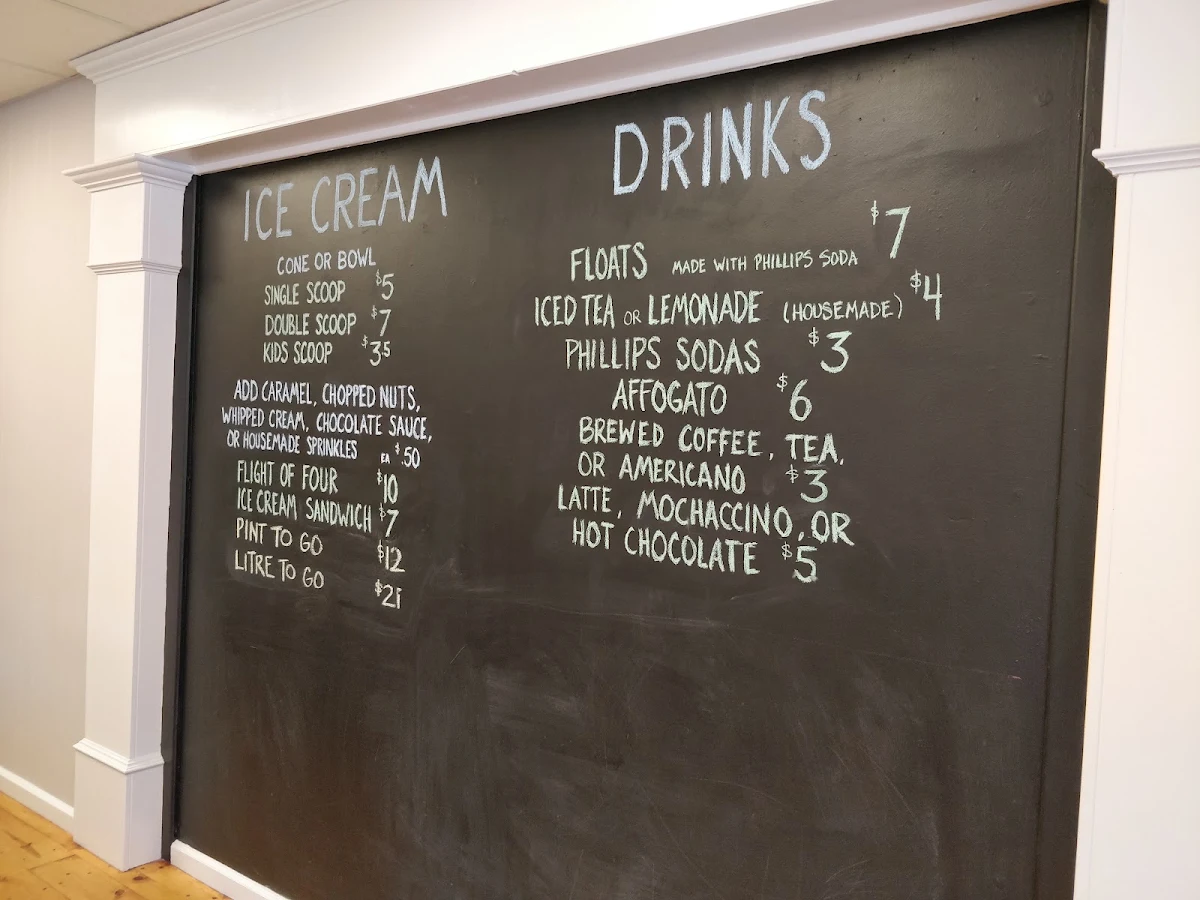 ICE CREAM
CONE OR BOWL
SINGLE SCOOP $5
DOUBLE SCOOP $7
KIDS SCOOP $3.5
ADD CARAMEL, CHOPPED NUTS,
WHIPPED CREAM, CHOCOLATE SAUCE,
OR HOUSEMADE SPRINKLES EA $.50
FLIGHT OF FOUR $10
ICE CREAM SANDWICH $7
PINT TO GO $12
LITRE TO GO $21
DRINKS
FLOATS MADE WITH PHILLIPS SODA $7
ICED TEA OR LEMONADE (HOUSEMADE) $4
PHILLIPS SODAS $3
AFFOGATO $6
BREWED COFFEE, TEA,
OR AMERICANO $3
LATTE, MOCHACCINO, OR
HOT CHOCOLATE $5